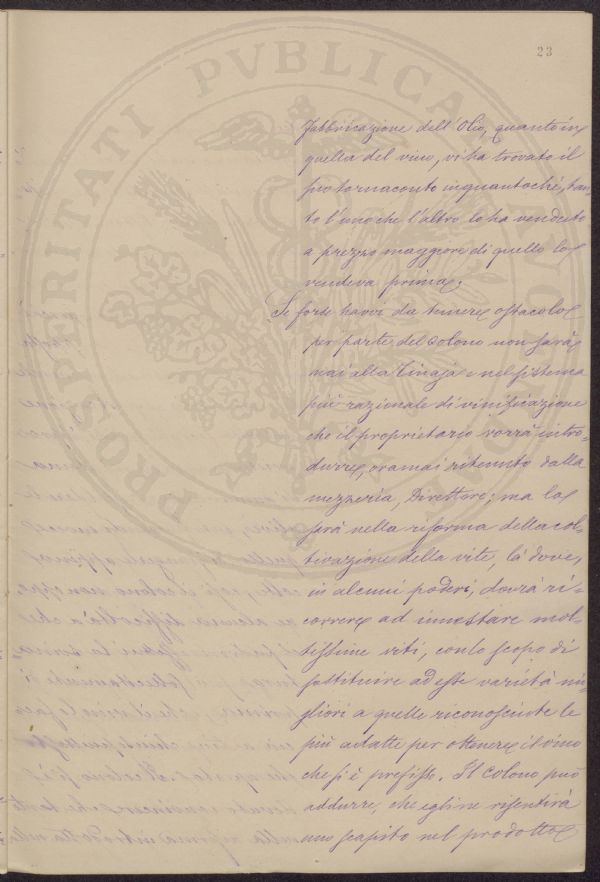 23
PROSPERITATI PVBLICAE
fabbricazione dell'Olio, quanto in
quella del vino, vi ha trovato il
suo tornaconto inquantoché, tan-
to l'uno che l'altro lo ha venduto
a prezzo maggiore di quello lo
vendeva prima.
Se forte havvi da temere ostacolo
per parte del colono non sarà
mai alla Tinaja e nel sistema
più razionale di vinificazione
che il proprietario vorrà intro-
durre, oramai ritenuto dalla
mezzeria, Direttore; ma lo
sarà nella riforma della col-
tivazione della vite, là dove,
in alcuni poderi, dovrà ri-
correre ad innestare mol-
tissime viti, con lo scopo di
sostituire ad esse varietà mi-
gliori a quelle riconosciute le
più adatte per ottenere il vino
che si è prefisso. Il colono può
addurre, che egli ne risentirà
uno scapito nel prodotto